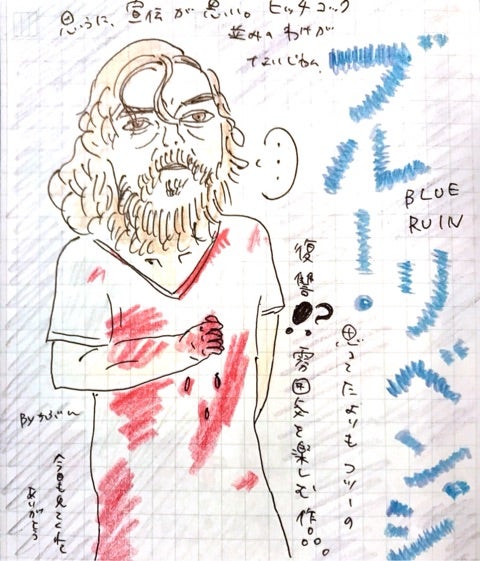 思うに、宣伝が悪い。ヒッチコック
並みのわけが
ないじゃん。
ブルー・
リベンジ
BLUE
RUIN
思ってたよりもフツーの
復讐!? 雰囲気を楽しむ作。。。
...
By
今日も見てくれて
ありがとう